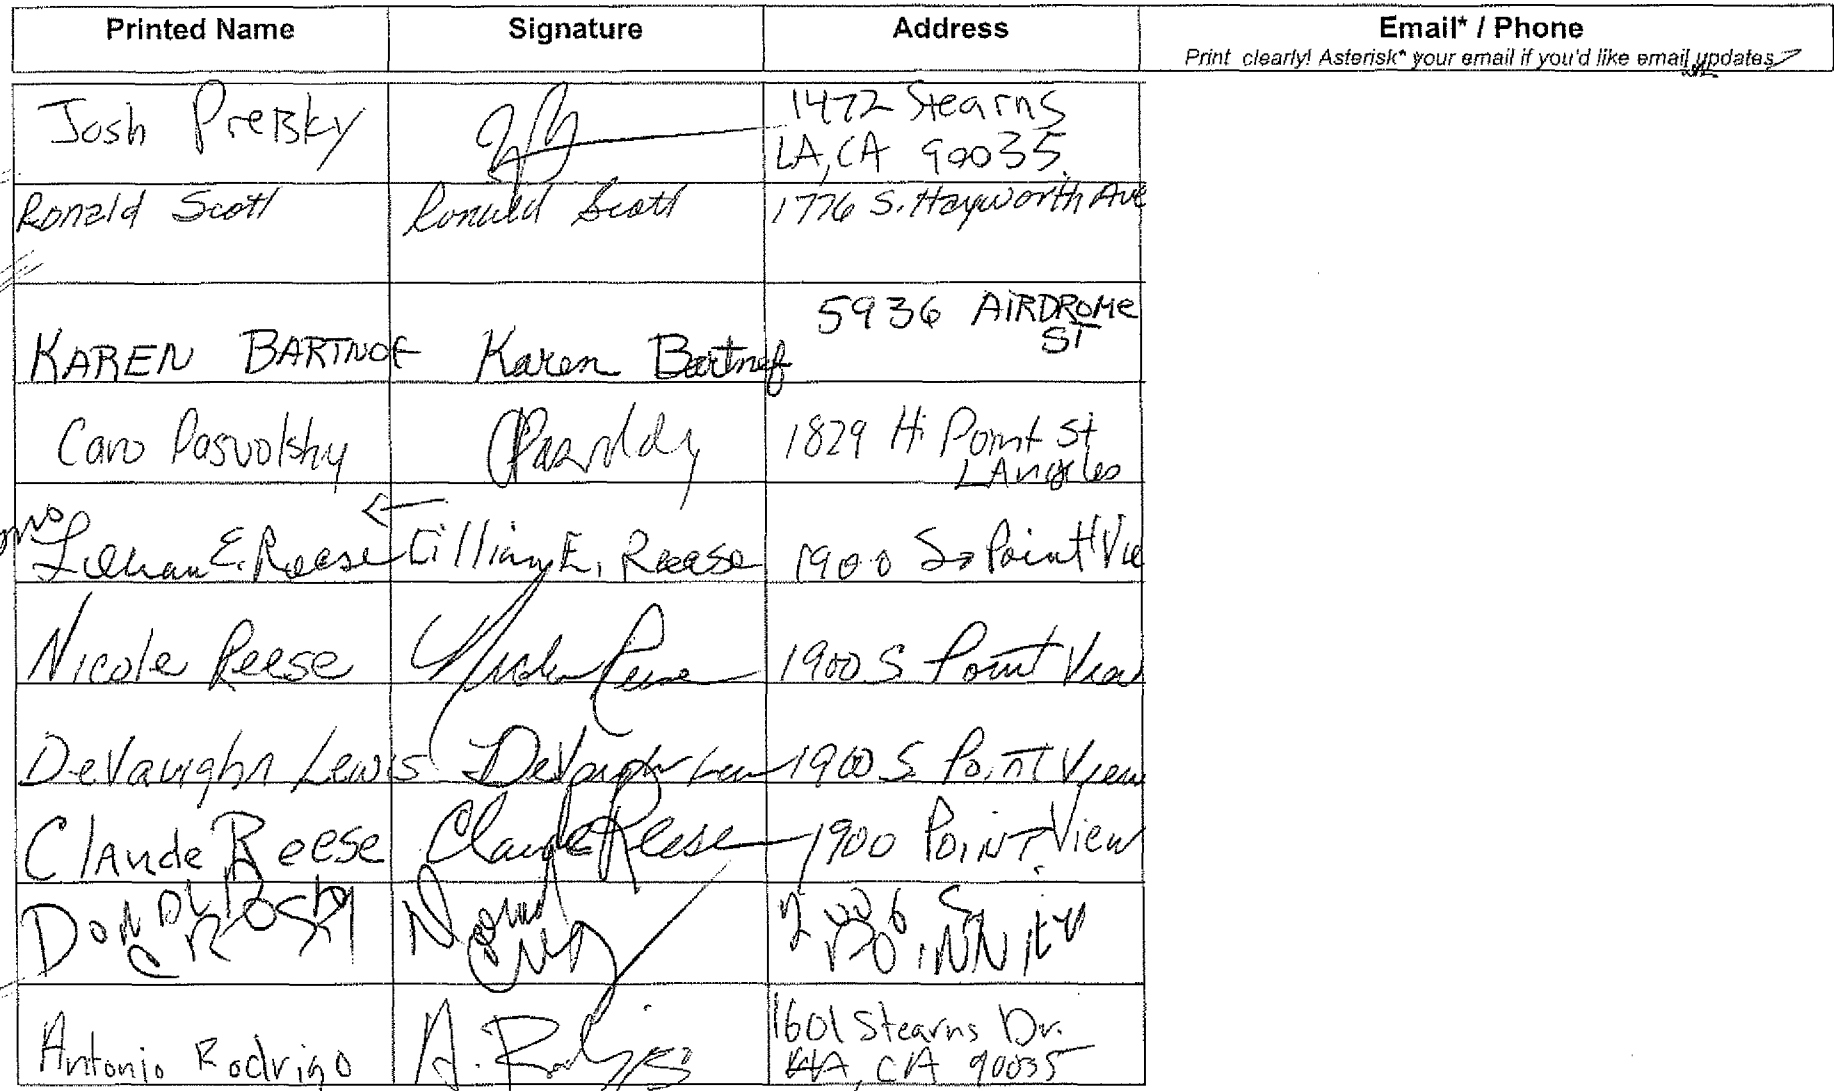 Printed Name Signature Address Email* / Phone
Print clearly! Asterisk* your email if you'd like email updates
Josh PreBsky 1472 Stearns
LA, CA 90035
Ronald Scott Ronald Scott 1776 S. Hayworth Ave
KAREN BARTNOF Karen Bartnof 5936 AIRDROME
ST
Caro Pasvolsky 1829 Hi Point St
LAngles
Lillian E. Reese Lillian E. Reese 1900 So Point Vie
Nicole Reese Nicole Reese 1900 S Point View
DeVaughn Lewis DeVaughn Lewis 1900 S. Point View
Claude Reese Claude Reese 1900 Point View
DONALD
CROSBY
Antonio Rodrigo A. 1601 Stearns Dr.
LA, CA 90035